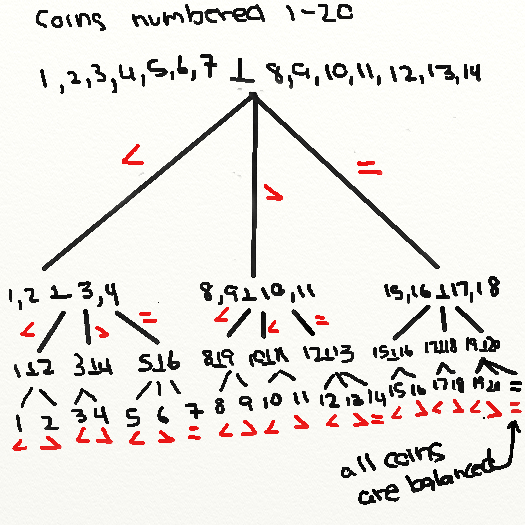 Coins numbered 1-20
1,2,3,4,5,6,7 ⊥ 8,9,10,11,12,13,14
< > =
1,2 ⊥ 3,4 8,9 ⊥ 10,11 15,16 ⊥ 17,18
< > = < < =
1⊥2 3⊥4 5⊥6 8⊥9 10⊥11 12⊥13 15⊥16 17⊥18 19⊥20
1 2 3 4 5 6 7 8 9 10 11 12 13 14 15 16 17 18 19 20 =
< > < > < > = < > < > < > = < > < > < > =
all coins
are balanced